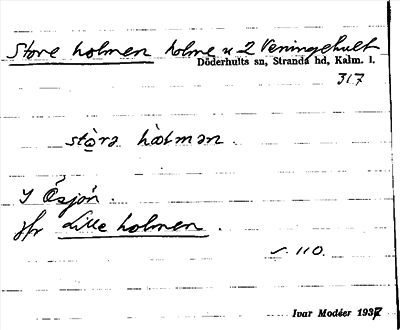 Store holmen holme u 2 Veningehult
Döderhults sn, Stranda hd, Kalm. l.
317
stòrə hòlmən
I Ösjön.
Jfr Lille holmen.
s. 110.
Ivar Modéer 1937